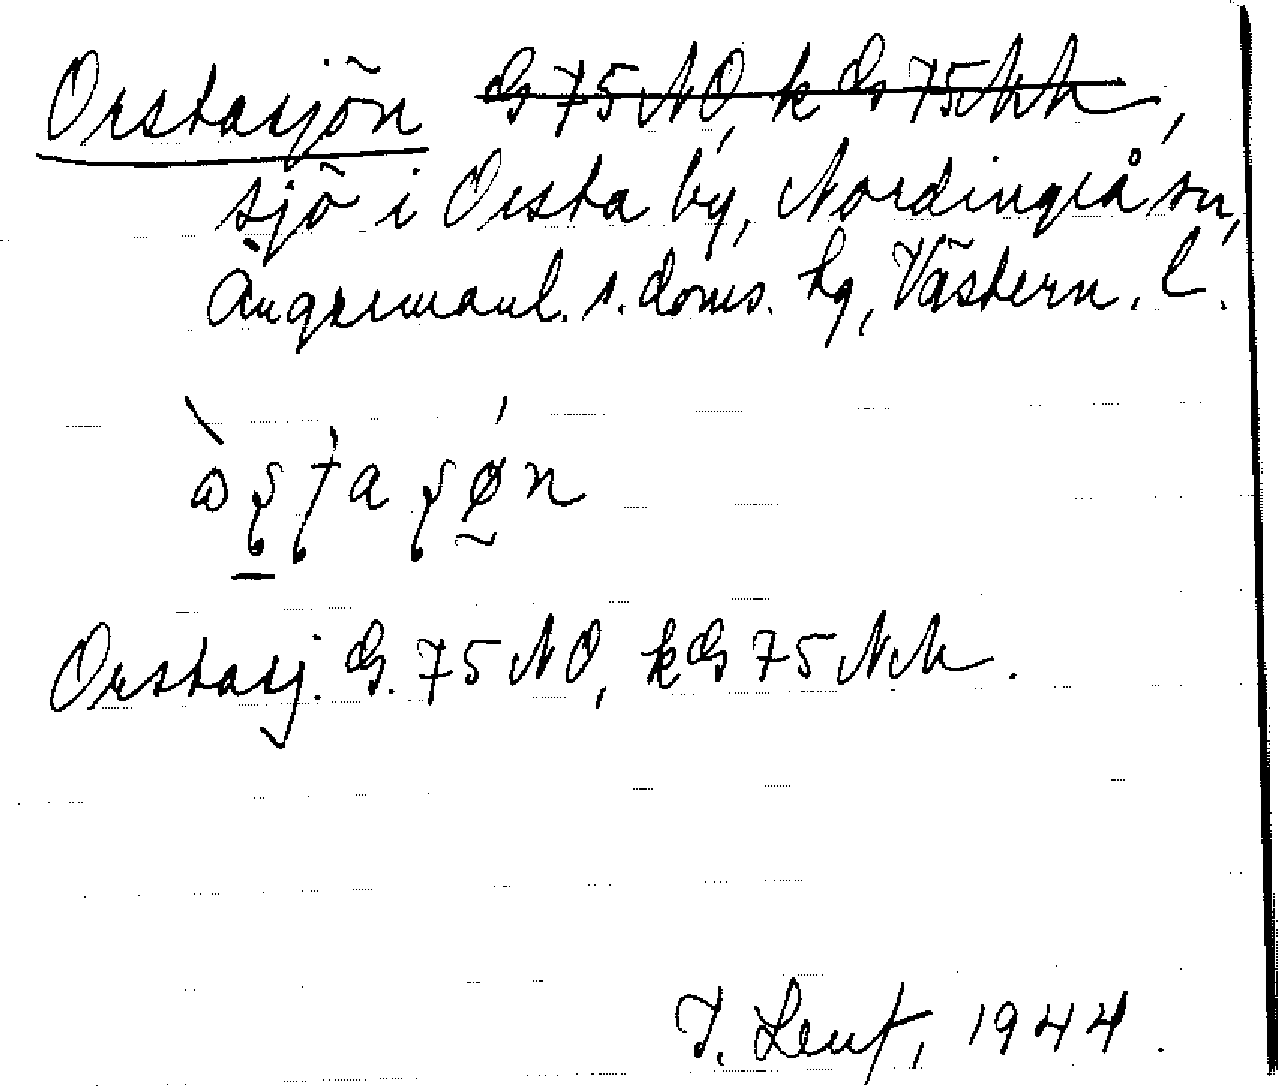 Orstasjön ~~G 75 NO, k G 75 NV~~,
sjö i Orsta by, Nordingrå sn,
Ångermanl. s. doms. hg, Västern. l.
Orstasj. G. 75 NO, k G 75 NV.
1944.